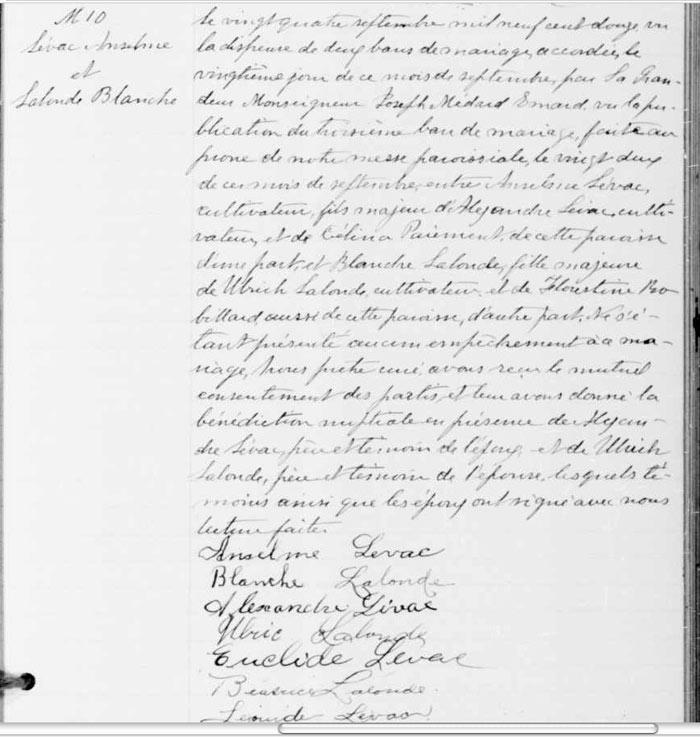 M 10
Lévac Anselme
et
Lalonde Blanche
Le vingt quatre septembre mil neuf cent douze, vu
la dispense de deux bans de mariage, accordée, le
vingtième jour de ce mois de septembre, par Sa Gran-
deur Monseigneur Joseph Médard Emard, vu la pu-
blication du troisième ban de mariage, faite au
prone de notre messe paroissiale, le vingt deux
de ce mois de septembre, entre Anselme Lévac,
cultivateur, fils majeur d'Alexandre Lévac, culti-
vateur, et de Célina Paiement, de cette paroisse
d'une part, et Blanche Lalonde, fille majeure
de Ulrich Lalonde, cultivateur, et de Florestine Ro-
billard, aussi de cette paroisse, d'autre part. Ne s'é-
tant présenté aucun empêchement à ce ma-
riage, Nous prêtre curé, avons reçu le mutuel
consentement des partis, et leur avons donné la
bénédiction nuptiale en présence de Alexan-
dre Lévac, père et témoin de l'époux, et de Ulrich
Lalonde, père et témoin de l'épouse, lesquels té-
moins ainsi que les époux ont signé avec nous
lecture faite.
Anselme Levac
Blanche Lalonde
Alexandre Livac
Ulric Lalonde
Euclide Levac
Béatrice Lalonde.
Léonide Levac.